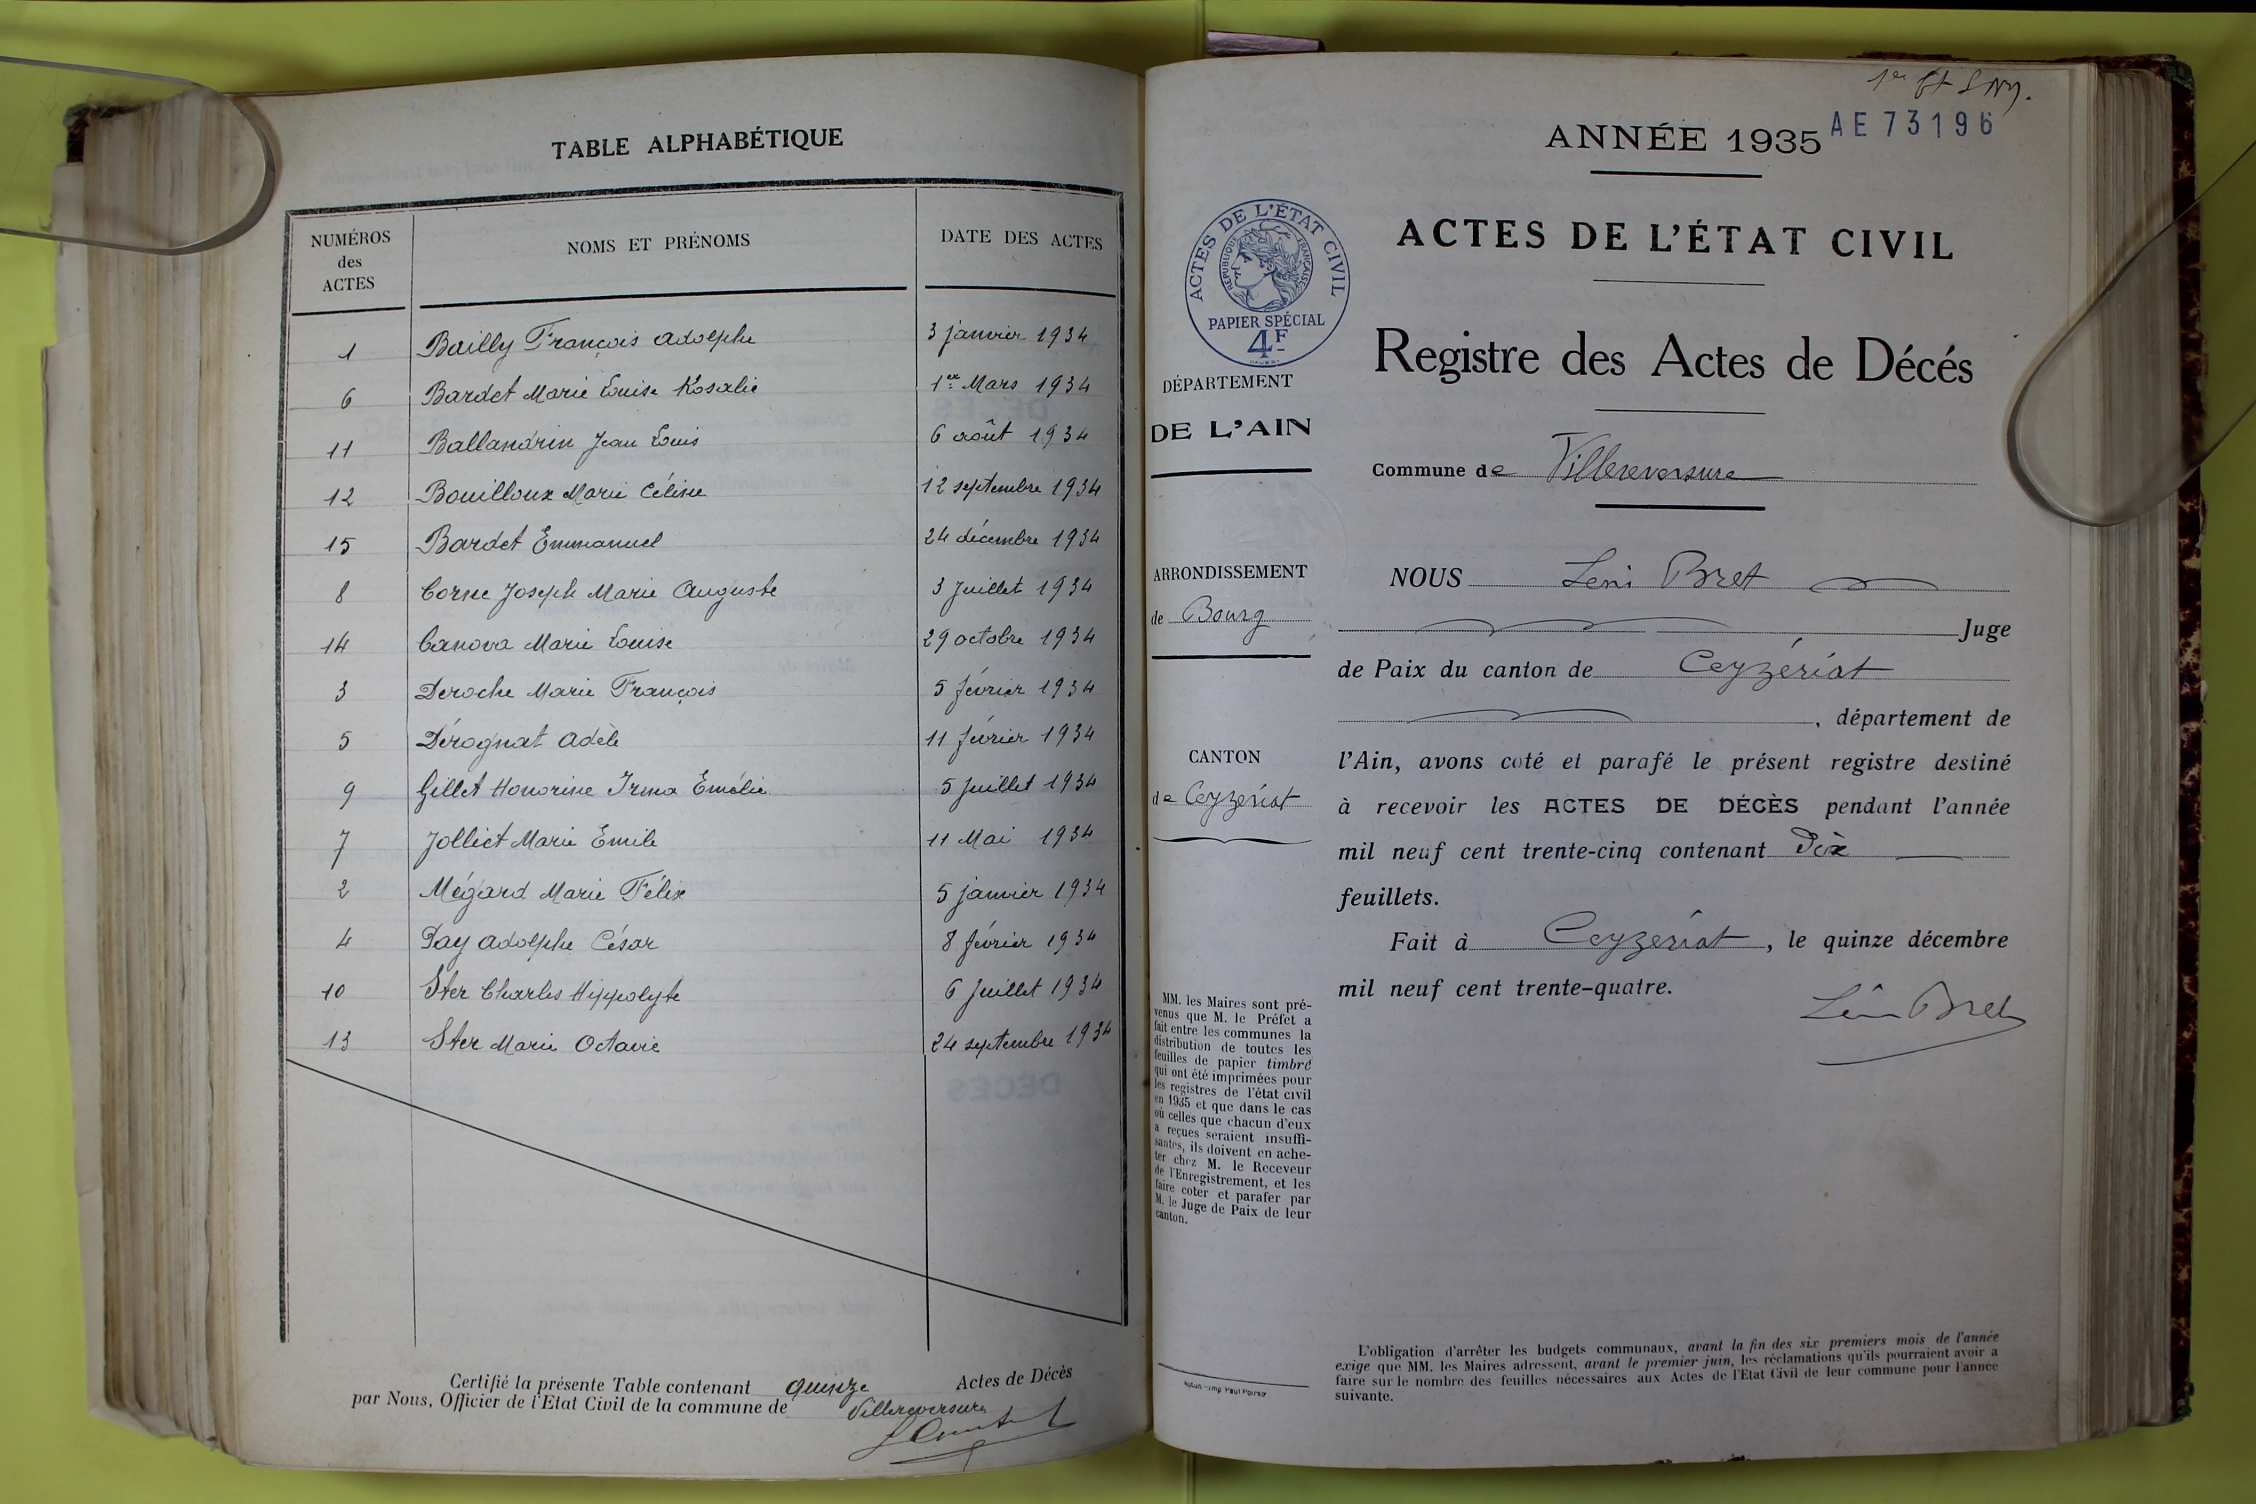 TABLE ALPHABÉTIQUE
NUMÉROS des ACTES NOMS ET PRÉNOMS DATE DES ACTES
1 Bailly François Adolphe 3 janvier 1934
6 Bardet Marie Louise Rosalie 1er Mars 1934
11 Ballandrin Jean Louis 6 août 1934
12 Bouilloux Marie Céline 12 septembre 1934
15 Bardet Emmanuel 24 décembre 1934
8 Corne Joseph Marie Auguste 3 Juillet 1934
14 Canova Marie Louise 29 octobre 1934
3 Deroche Marie François 5 février 1934
5 Dérognat Adèle 11 février 1934
9 Gillet Honorine Irma Emélie 5 Juillet 1934
7 Jolliet Marie Emile 11 Mai 1934
2 Mégard Marie Félix 5 janvier 1934
4 Pay Adolphe César 8 février 1934
10 Ster Charles Hippolyte 6 Juillet 1934
13 Ster Marie Octavie 24 septembre 1934
DÉCÈS
Certifié la présente Table contenant quinze Actes de Décès
par Nous, Officier de l'Etat Civil de la commune de Villereversure
AE73196
ANNÉE 1935
ACTES DE L'ÉTAT CIVIL
RÉPUBLIQUE FRANÇAISE
PAPIER SPÉCIAL
4F
ACTES DE L'ÉTAT CIVIL
Registre des Actes de Décés
DÉPARTEMENT
DE L'AIN
Commune de Villereversure
ARRONDISSEMENT
de Bourg
CANTON
de Ceyzériat
NOUS Léon Bret
Juge
de Paix du canton de Ceyzériat
, département de
l'Ain, avons coté et parafé le présent registre destiné
à recevoir les ACTES DE DÉCÈS pendant l'année
mil neuf cent trente-cinq contenant Dix
feuillets.
Fait à Ceyzériat, le quinze décembre
mil neuf cent trente-quatre.
Léon Bret
MM. les Maires sont pré-
venus que M. le Préfet a
fait entre les communes la
distribution de toutes les
feuilles de papier timbré
qui ont été imprimées pour
les registres de l'état civil
en 1935 et que dans le cas
où celles que chacun d'eux
a reçues seraient insuffi-
santes, ils doivent en ache-
ter chez M. le Receveur
de l'Enregistrement, et les
faire coter et parafer par
M. le Juge de Paix de leur
canton.
L'obligation d'arrêter les budgets communaux, avant la fin des six premiers mois de l'année
exige que MM. les Maires adressent, avant le premier juin, les réclamations qu'ils pourraient avoir à
faire sur le nombre des feuilles nécessaires aux Actes de l'Etat Civil de leur commune pour l'année
suivante.